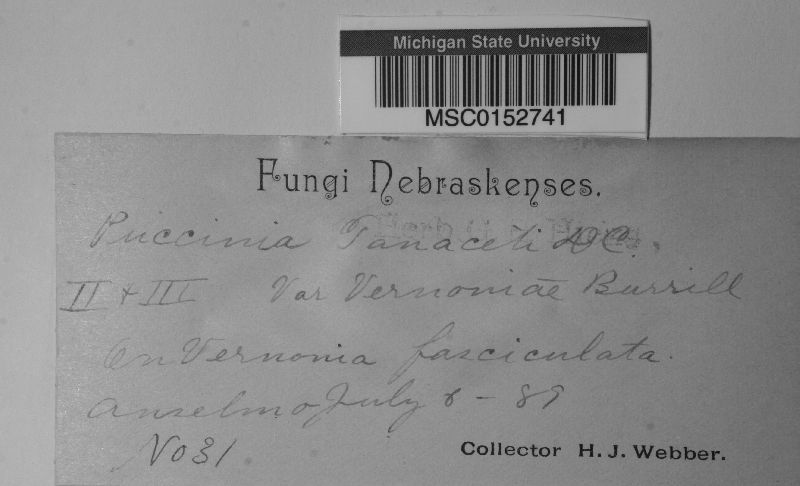 Michigan State University
MSC0152741
Fungi Nebraskenses.
Puccinia Tanaceti DC.
II & III Var Vernoniae Burrill
On Vernonia fasciculata.
Anselmo July 8 - 89
No 31
Collector H. J. Webber.